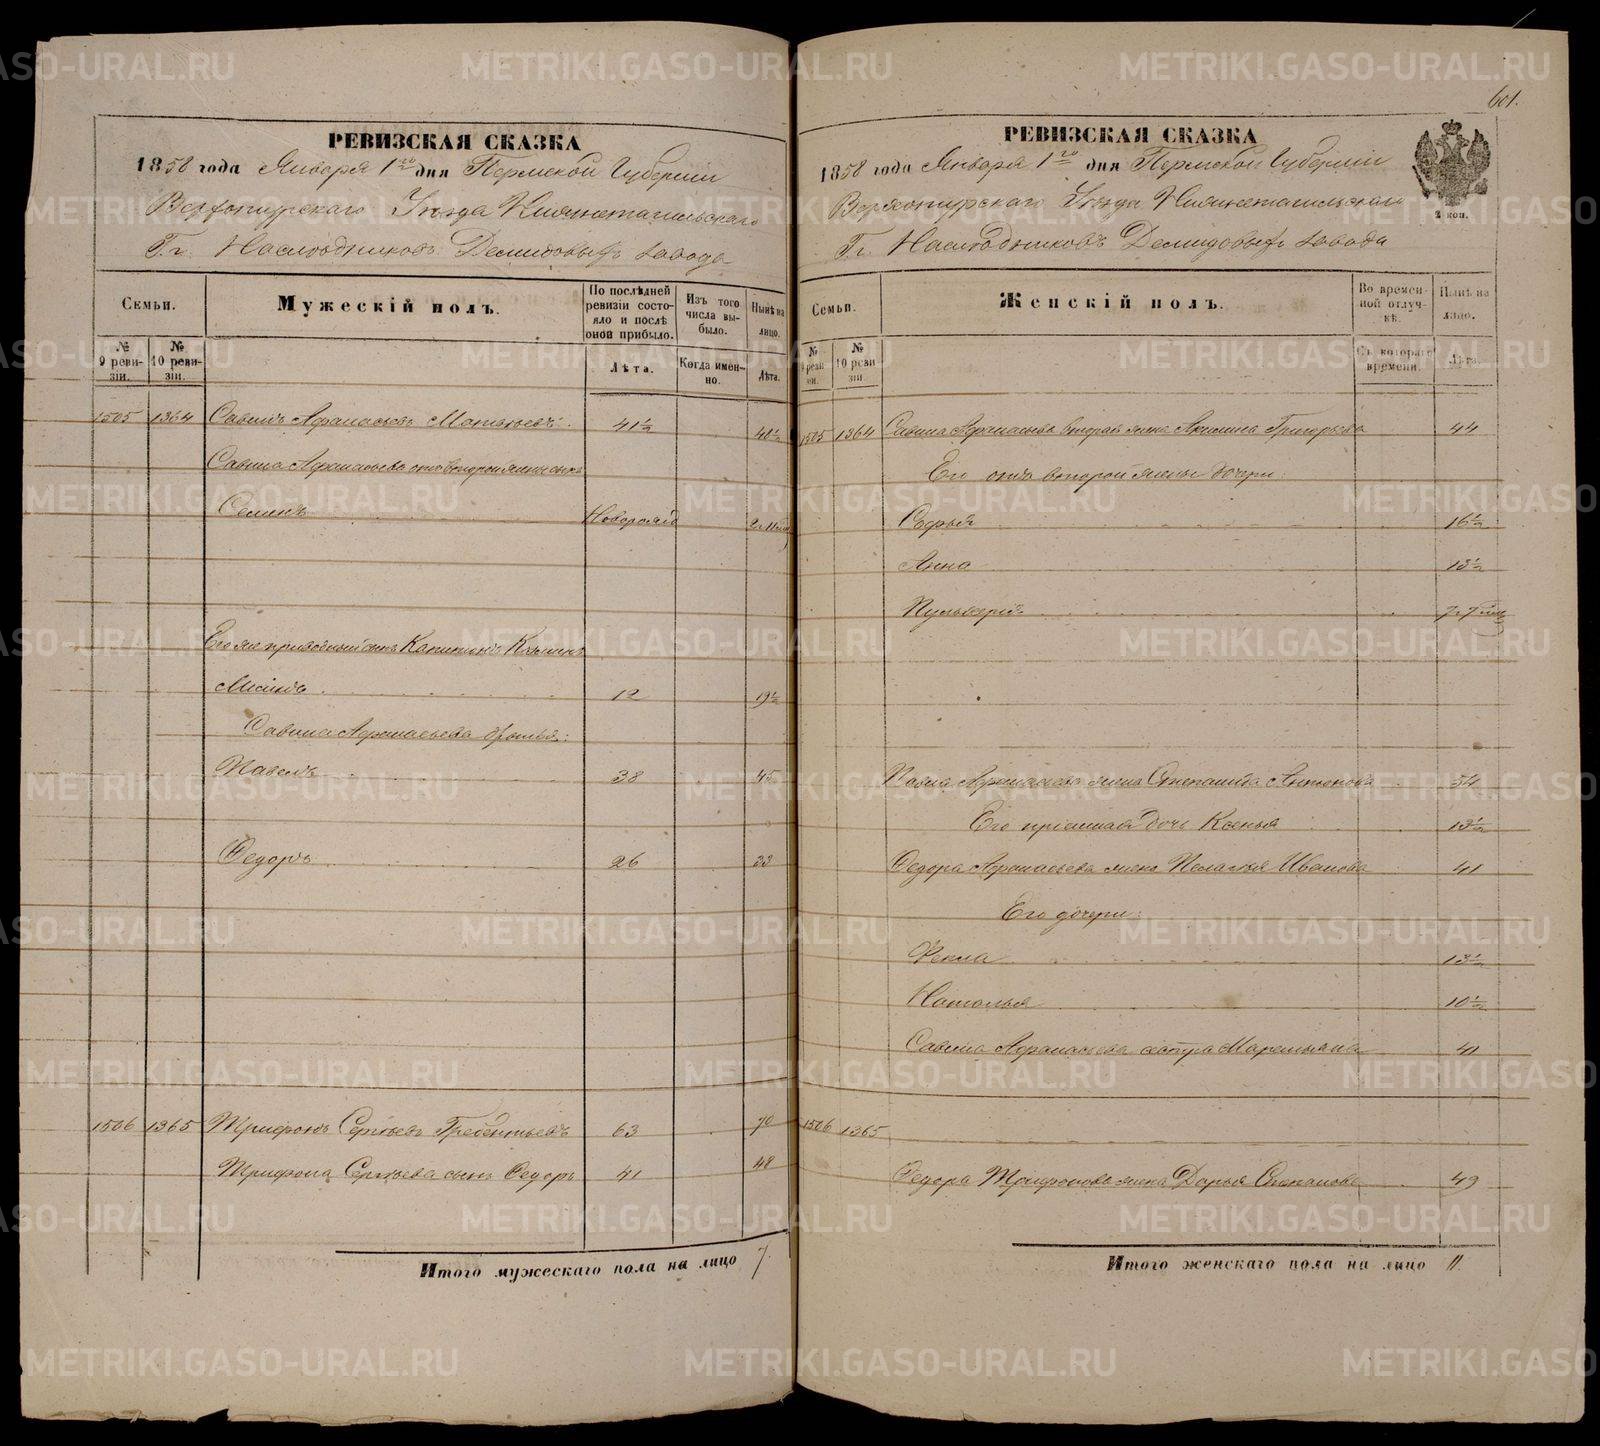 РЕВИЗСКАЯ СКАЗКА
1858 года Января 1го дня Пермской Губернiи
Верхотурскаго Уѣзда Нижнетагильскаго
Г.г. Наслѣдниковъ Демидовыхъ завода
Семьи.
Мужескій полъ.
По послѣдней ревизіи состояло и послѣ оной прибыло.
Изъ того числа выбыло.
Нынѣ на лицо.
№ 9 ревизіи.
№ 10 ревизіи.
Лѣта.
Когда именно.
Лѣта.
1505 1364 Савинъ Афанасьевъ 41½ 48½
Савина Афанасьева отъ второй жены сынъ
Семенъ Новорожд
Его же приводный сынъ Капитонъ Козминъ
12 19½
Савина Афанасьева братья:
Павелъ 38 45
Федоръ 26 33
1506 1365 Трифонъ Сергѣевъ Гребентьевъ 63 70
Трифона Сергѣева сынъ Федоръ 41 48
Итого мужескаго пола на лицо 7.
601.
РЕВИЗСКАЯ СКАЗКА
1858 года Января 1го дня Пермской Губернiи
Верхотурскаго Уѣзда Нижнетагильскаго
Г.г. Наслѣдниковъ Демидовыхъ завода
2 коп.
Семьи.
Женскій полъ.
Во временной отлучкѣ.
Нынѣ на лицо.
№ 9 ревизіи.
№ 10 ревизіи.
Съ котораго времени.
Лѣта.
1505 1364 Савина Афанасьева вторая жена Акилина Григорьева 44
Его отъ второй жены дочери:
Софья 16½
Анна 13½
Пульхерія
Павла Афанасьева жена Степанида Антонова 54
Его пріемная дочь Ксенья 13½
Федора Афанасьева жена Пелагея Иванова 41
Его дочери:
Фекла 13½
Наталья 10½
Савина Афанасьева сестра Маремьяна 41
1506 1365
Федора Трифонова жена Дарья Степанова 49
Итого женскаго пола на лицо 11.
METRIKI.GASO-URAL.RU